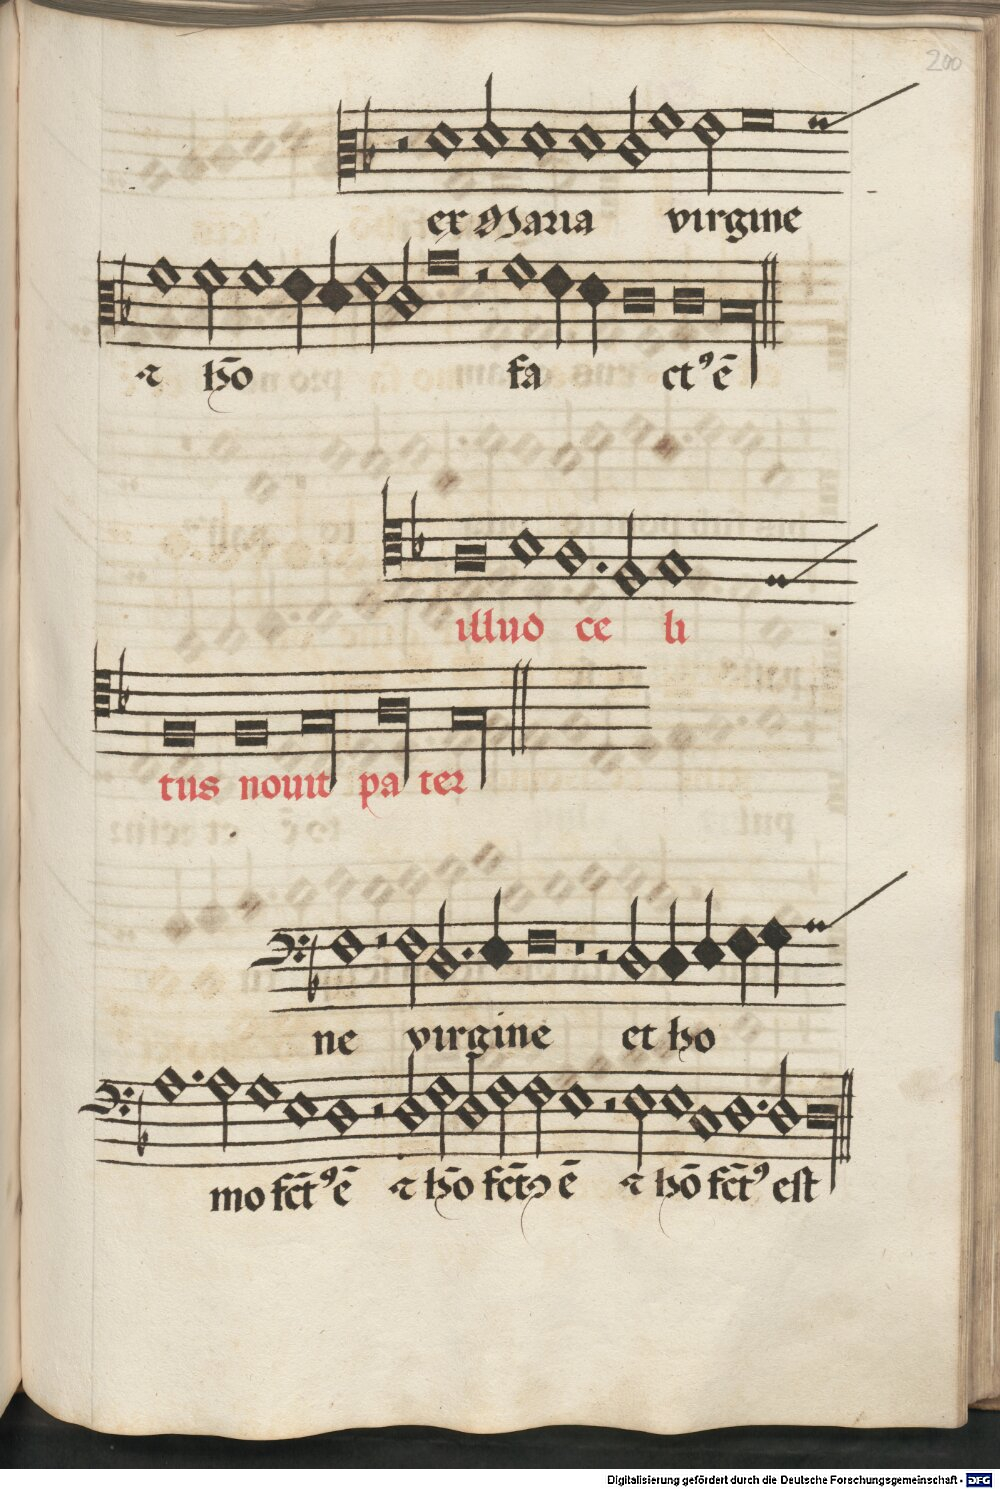 200
ex Maria virgine
⁊ hō fa ctꝰ ē
illud ce li
tus nouit pa ter
ne virgine et ho
mo fc̄tꝰ ē ⁊ hō fc̄tꝰ ē ⁊ hō fc̄tꝰ est
Digitalisierung gefördert durch die Deutsche Forschungsgemeinschaft - DFG